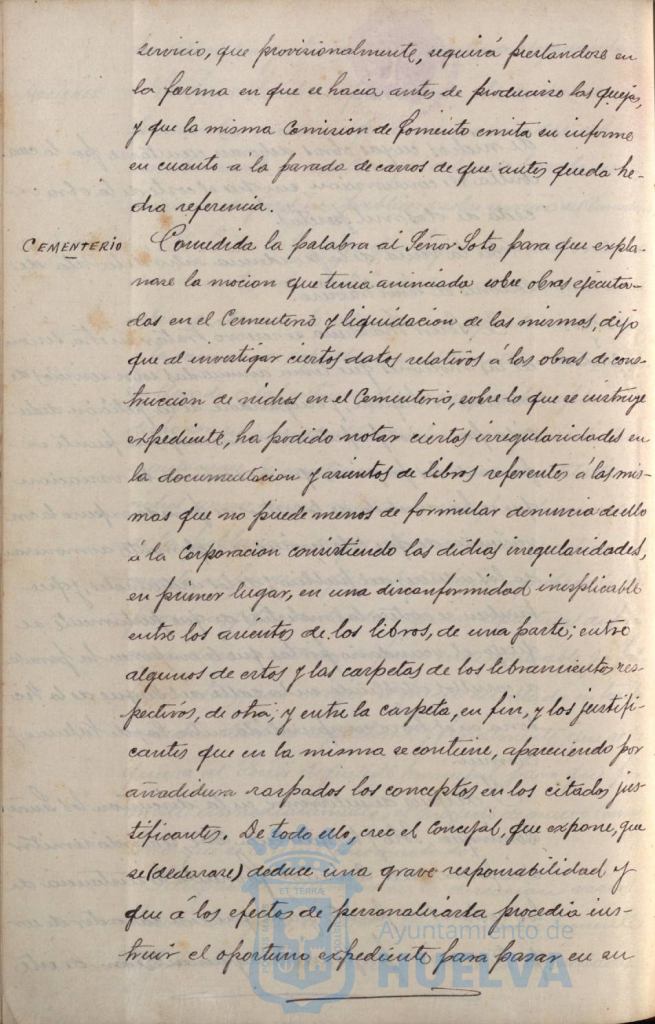 servicio, que provisionalmente, seguirá prestandose en
la forma en que se hacia antes de producirse las quejas,
y que la misma Comision de Fomento emita su informe
en cuanto á la parada de carros de que antes queda he-
cha referencia.
CEMENTERIO
Concedida la palabra al Señor Soto para que expla-
nase la mocion que tenia anunciada sobre obras ejecuta-
das en el Cementerio y liquidacion de las mismas, dijo
que al investigar ciertos datos relativos á las obras de cons-
truccion de nichos en el Cementerio, sobre lo que se instruye
expediente, ha podido notar ciertas irregularidades en
la documentacion y asientos de libros referentes á las mis-
mas que no puede menos de formular denuncia de ello
á la Corporacion consistiendo las dichas irregularidades,
en primer lugar, en una disconformidad inesplicable
entre los asientos de los libros, de una parte; entre
algunos de estos y las carpetas de los libramientos res-
pectivos, de otra; y entre la carpeta, en fin, y los justifi-
cantes que en la misma se contiene, apareciendo por
añadidura raspados los conceptos en los citados jus-
tificantes. De todo ello, cree el Concejal, que expone, que
se (declarase) deduce una grave responsabilidad y
que á los efectos de personalizarla procedia ins-
truir el oportuno expediente para pasar en su
ET TERRÆ
Ayuntamiento de
HUELVA